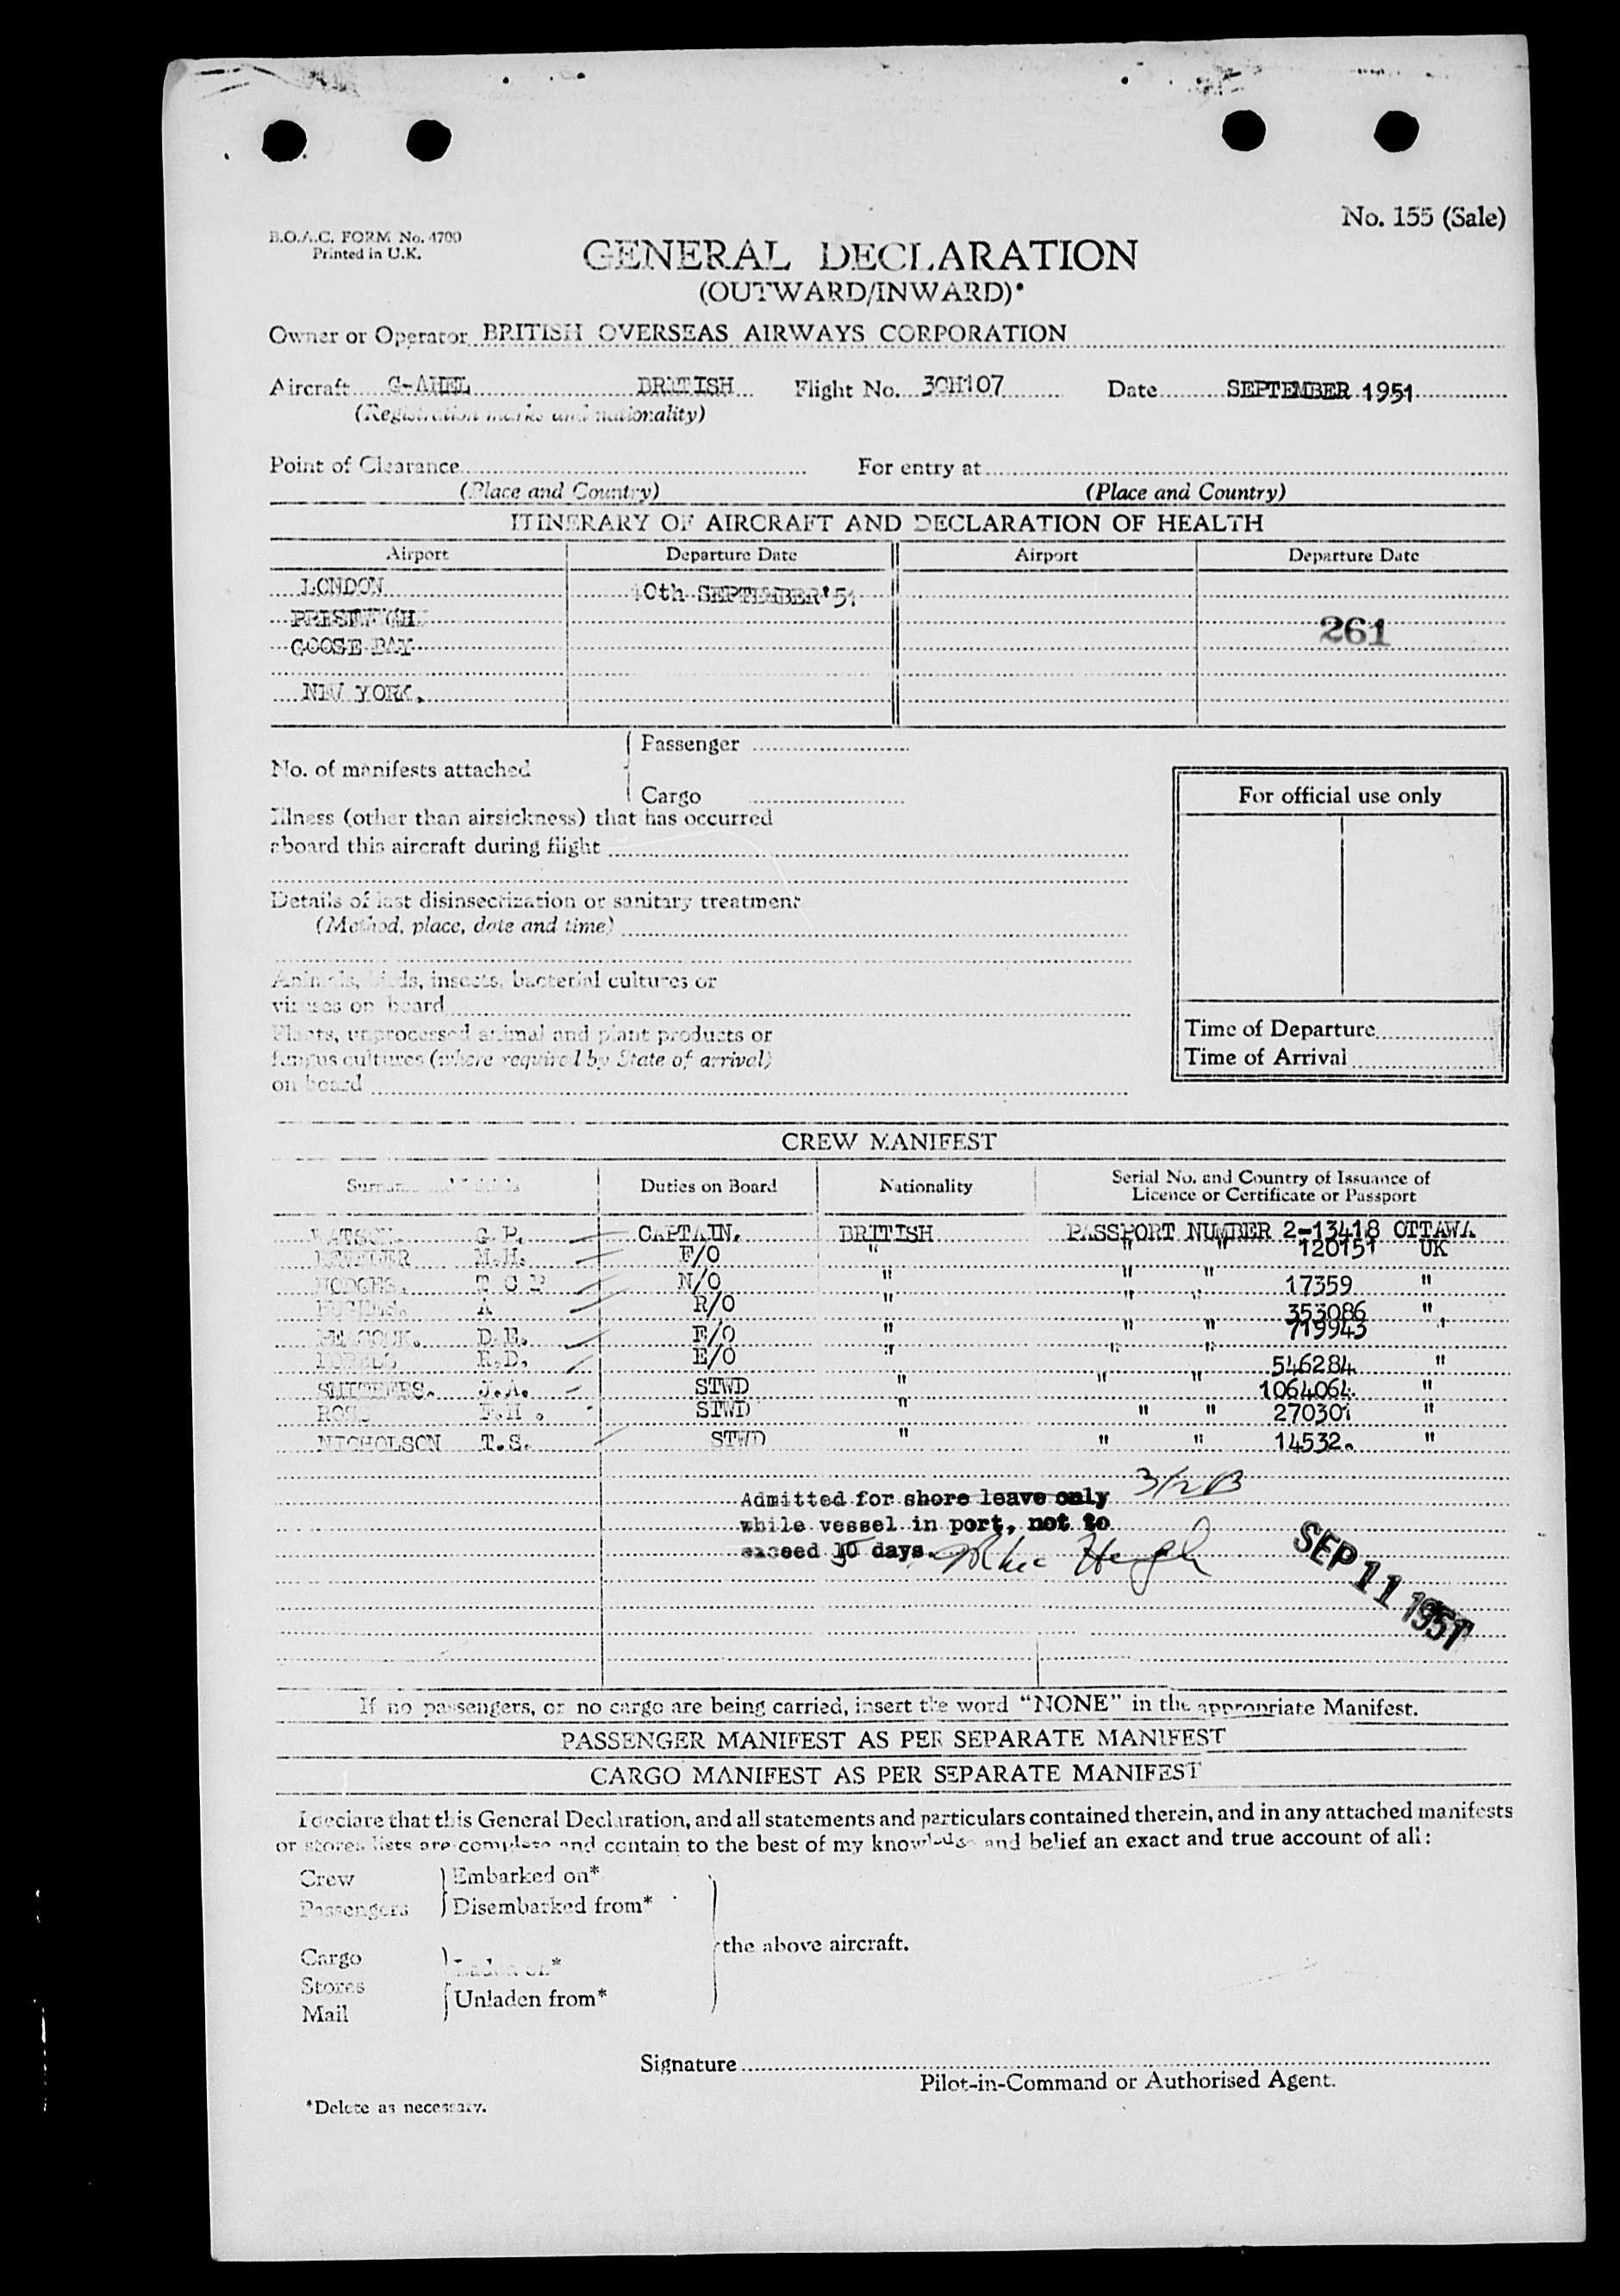 No. 155 (Sale)
B.O.A.C. FORM No. 4700
Printed in U.K.
GENERAL DECLARATION
(OUTWARD/INWARD)*
Owner or Operator BRITISH OVERSEAS AIRWAYS CORPORATION
Aircraft BRITISH Flight No. Date SEPTEMBER 1951
(Registration marks and nationality)
Point of Clearance For entry at
(Place and Country) (Place and Country)
ITINERARY OF AIRCRAFT AND DECLARATION OF HEALTH
Airport Departure Date Airport Departure Date
LONDON 10th SEPTEMBER'51
PRESTWICH
261
GOOSE BAY
NEW YORK.
Passenger
No. of manifests attached
Cargo
For official use only
Illness (other than airsickness) that has occurred
aboard this aircraft during flight
Details of last disinsectization or sanitary treatment
(Method, place, date and time)
Animals, birds, insects, bacterial cultures or
viruses on board
Plants, unprocessed animal and plant products or
fungus cultures (where required by State of arrival)
on board
Time of Departure
Time of Arrival
CREW MANIFEST
Surname and Initials Duties on Board Nationality Serial No. and Country of Issuance of
Licence or Certificate or Passport
WATSON. G.P. CAPTAIN. BRITISH PASSPORT NUMBER 2-13418 OTTAWA
M.H. F/O " " " 120151 UK
HODGES. T G P N/O " " " 17359 "
HUGHES. A R/O " " " 353086 "
PEACOCK. D.E. E/O " " " 719943 "
R.D. E/O " " " 546284 "
SMITHERS. J.A. STWD " " " 1064064. "
ROSS F.H. STWD " " " 270301 "
NICHOLSON T.S. STWD " " " 14532. "
Admitted for shore leave only
while vessel in port, not to
exceed 10 days.
SEP 11 1951
If no passengers, or no cargo are being carried, insert the word "NONE" in the appropriate Manifest.
PASSENGER MANIFEST AS PER SEPARATE MANIFEST
CARGO MANIFEST AS PER SEPARATE MANIFEST
I declare that this General Declaration, and all statements and particulars contained therein, and in any attached manifests
or stores lists are complete and contain to the best of my knowledge and belief an exact and true account of all:
Crew Embarked on*
Passengers Disembarked from*
the above aircraft.
Cargo Laden on*
Stores
Unladen from*
Mail
Signature
Pilot-in-Command or Authorised Agent.
*Delete as necessary.